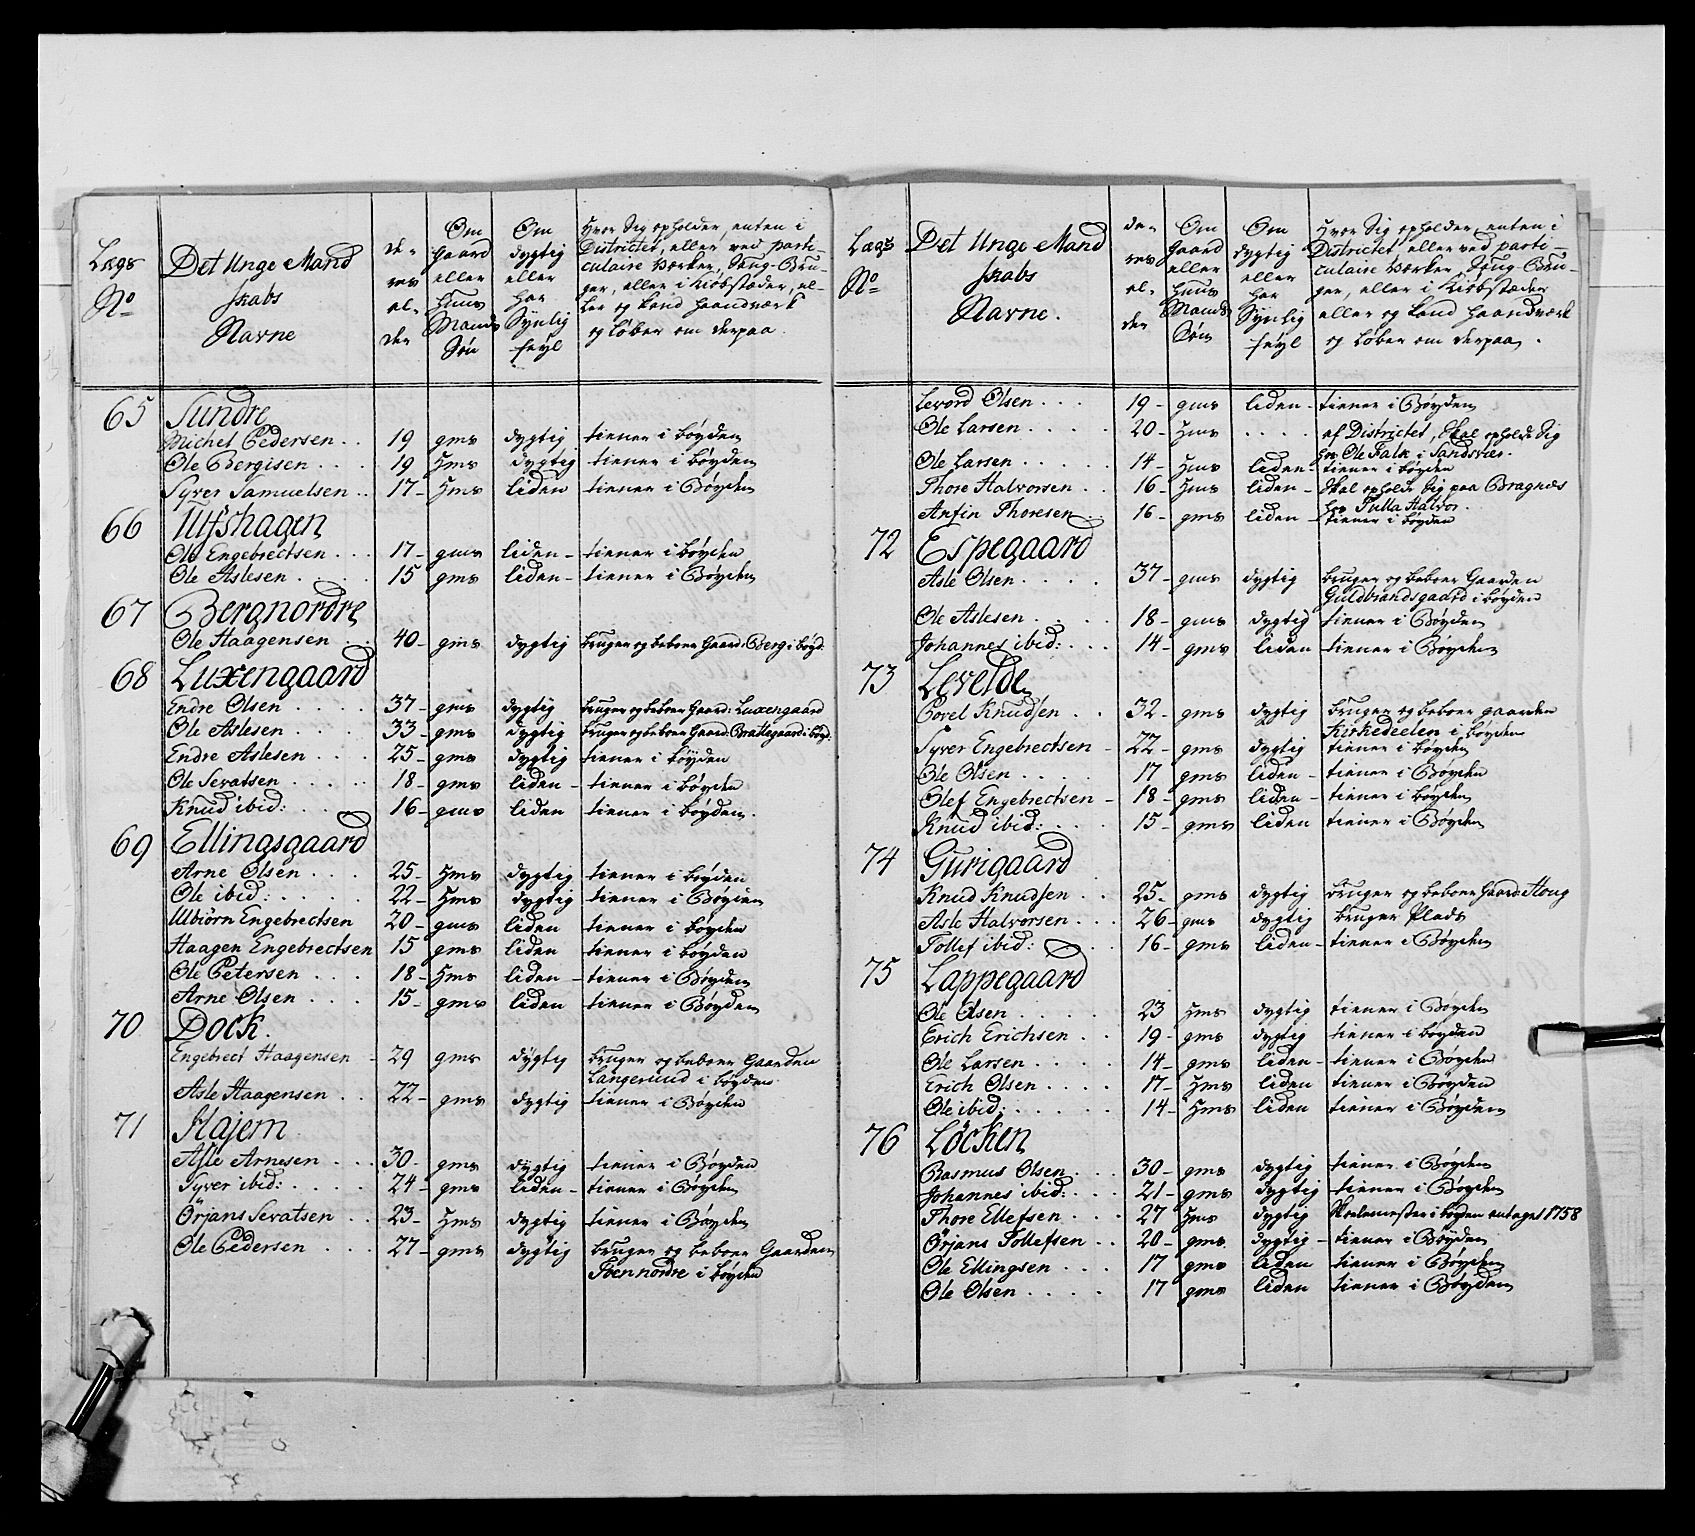 Lægs No
Det Unge Mandskabs Navne
deres alder
Om Gaard eller Huus Mands Søn
Om dygtig eller har Synlig feyl
Hvor Sig opholder, enten i
Districtet, eller ved parti-
culaire Værker, Saug-Bru-
ger, eller i Kiøbstæder, el-
ler og kand haandværk
og løber om derpaa.
65 Sundre
Michel Pedersen . . 19 gms dygtig tiener i bøyden
Ole Bergisen . . . 19 Hms dygtig tiener i bøyden
Syver Samuelsen . . 17- Hms liden tiener i Bøyden
66 Ulfshagen
Ole Engebrectsen . . . 17- gms liden- tiener i bøyden
Ole Aslesen . . . . 15 gms liden- tiener i Bøyden
67 Bergnordre
Ole Haagensen . . 40- gms dygtig bruger og beboer Gaard: Berg i bøyd:
68 Luxengaard
Endre Olsen . . . . 37- gms dygtig bruger og beboer Gaard: Luxengaard
Ole Aslesen . . . . 33- gms dygtig bruger og beboer Gaard: Brattegaard i bøyd:
Endre Aslesen . . . 25- gms dygtig tiener i bøyden
Ole Sevatsen . . . 18- gms liden- tiener i bøyden
Knud ibid: . . . . 16- gms liden tiener i bøyden.
69 Ellingsgaard
Arne Olsen . . . 25- Hms dygtig tiener i bøyden
Ole ibid: . . . . 22- Hms dygtig tiener i Bøyden
Ulbiørn Engebrectsen 20- gms liden tiener i bøyden
Haagen Engebrectsen 15 gms liden tiener i bøyden
Ole Petersen . . . 18- Hms liden- tiener i Bøyden
Arne Olsen . . . 15- gms liden tiener i Bøyden
70 Dock.
Engebrect Haagensen - 29 gms dygtig bruger og beboer Gaarden
Langerund i bøyden
Asle Haagensen . . 22- gms dygtig tiener i Bøyden
71 Hajem
Asle Arnesen . . . 30- gms dygtig tiener i Bøyden
Syver ibid: . . . . 24- gms liden- tiener i Bøyden
Ørjans Sevatsen . . 23- Hms dygtig tiener i Bøyden
Ole Pedersen . . . 27- gms dygtig bruger og beboer Gaarden
Toennordre i bøyden
Lægs No
Det Unge Mandskabs Navne.
deres alder
Om Gaard eller Huus Mands Søn
Om dygtig eller har Synlig feyl
Hvor Sig opholder, enten i
Districtet eller ved parti-
culaire Værker, Saug-Bru-
ger, eller i Kiøbstæder
eller og kand haandværk
og løber om derpaa.
Levord Olsen . . . 19- gms liden- tiener i Bøyden
Ole Larsen . . . . 20- Hms . . . . af Districtet, Skal opholde Sig
hos Ole Falk i Sandsvær.
Ole Larsen . . . . . 14- Hms liden- tiener i bøyden
Thore Halvorsen . . 16- Hms liden- Skal opholde Sig paa Bragnæs
hos Tulla Halvor.
Anfin Thoresen . . 16- gms liden- tiener i bøyden
72 Espegaard
Asle Olsen . . . . 37- gms dygtig bruger og beboer Gaarden
Guldbrandsgaard i bøyden
Ole Aslesen . . . . 18- gms dygtig tiener i Bøyden
Johannes ibid: . . . 14- gms liden tiener i Bøyden
73 Levelde
Povel Knudsen . . 32- gms dygtig bruger og beboer gaarden
Kirkedeelen i bøyden
Syver Engebrectsen - 22- gms dygtig tiener i bøyden
Ole Olsen . . . . 17 gms liden- tiener i Bøyden
Olef Engebrectsen - 18- gms liden- tiener i bøyden
Knud ibid: . . . 15- gms liden tiener i Bøyden
74 Gurigaard
Knud Knudsen . . 25- gms dygtig bruger og beboer Gaard: Houg
Asle Halvorsen . . . 26- gms dygtig bruger Plads
Tollef ibid: . . 16- gms liden- tiener i Bøyden
75 Lappegaard
Ole Olsen . . . . 23 Hms dygtig tiener i Bøyden
Erich Erichsen . . 19- gms dygtig tiener i bøyden
Ole Larsen . . . . 14- gms liden- tiener i Bøyden
Erich Olsen . . . . 17- Hms liden tiener i Bøyden
Ole ibid: . . . . . 14- Hms liden tiener i Bøyden
76 Løcken
Rasmus Olsen . . . 30- gms dygtig tiener i Bøyden
Johannes ibid: . . . 21- gms dygtig tiener i Bøyden
Thore Ellefsen . . . 27 Hms dygtig Skolemester i bøyden antaget 1758
Ørjans Tollefsen . . 20- gms dygtig- tiener i Bøyden
Ole Ellingsen . . . 17 gms liden tiener i Bøyden
Ole Olsen . . . . 17 gms liden tiener i Bøyden